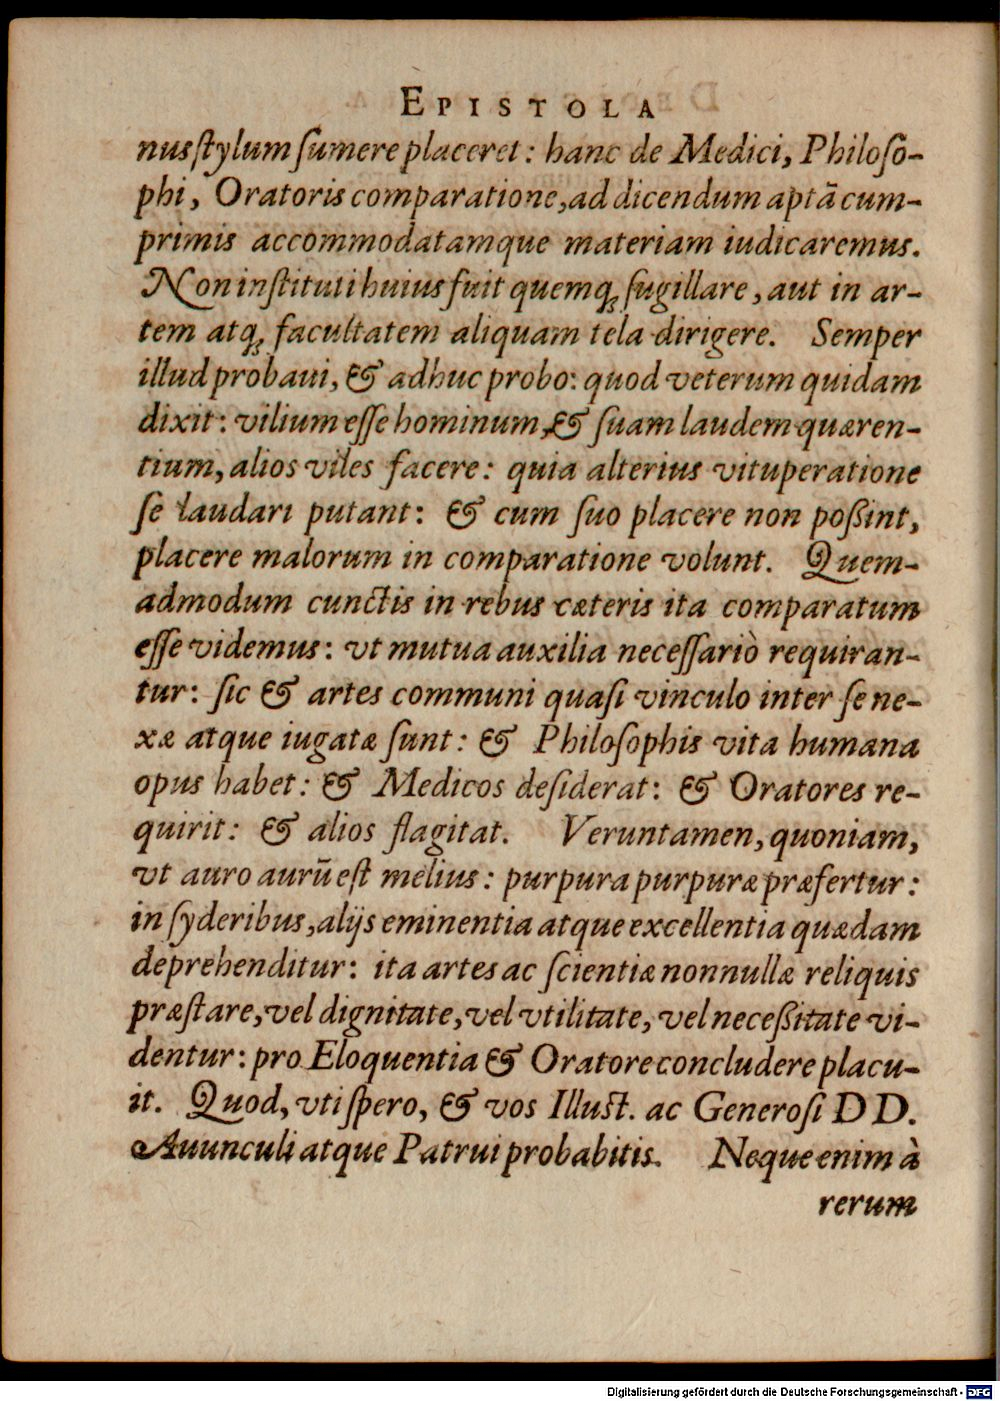 EPISTOLA
nus stylum sumere placeret: hanc de Medici, Philoso-
phi, Oratoris comparatione, ad dicendum aptā cum-
primis accommodatamque materiam iudicaremus.
Non instituti huius fuit quemq; sugillare, aut in ar-
tem atq; facultatem aliquam tela dirigere. Semper
illud probaui, & adhuc probo: quod veterum quidam
dixit: vilium esse hominum, & suam laudem quæren-
tium, alios viles facere: quia alterius vituperatione
se laudari putant: & cum suo placere non poßint,
placere malorum in comparatione volunt. Quem-
admodum cunctis in rebus cæteris ita comparatum
esse videmus: vt mutua auxilia necessariò requiran-
tur: sic & artes communi quasi vinculo inter se ne-
xæ atque iugatæ sunt: & Philosophis vita humana
opus habet: & Medicos desiderat: & Oratores re-
quirit: & alios flagitat. Veruntamen, quoniam,
vt auro aurū est melius: purpura purpuræ præfertur:
in syderibus, alijs eminentia atque excellentia quædam
deprehenditur: ita artes ac scientiæ nonnullæ reliquis
præstare, vel dignitate, vel vtilitate, vel neceßitate vi-
dentur: pro Eloquentia & Oratore concludere placu-
it. Quod, vti spero, & vos Illust. ac Generosi DD.
Auunculi atque Patrui probabitis. Neque enim à
rerum
Digitalisierung gefördert durch die Deutsche Forschungsgemeinschaft - DFG